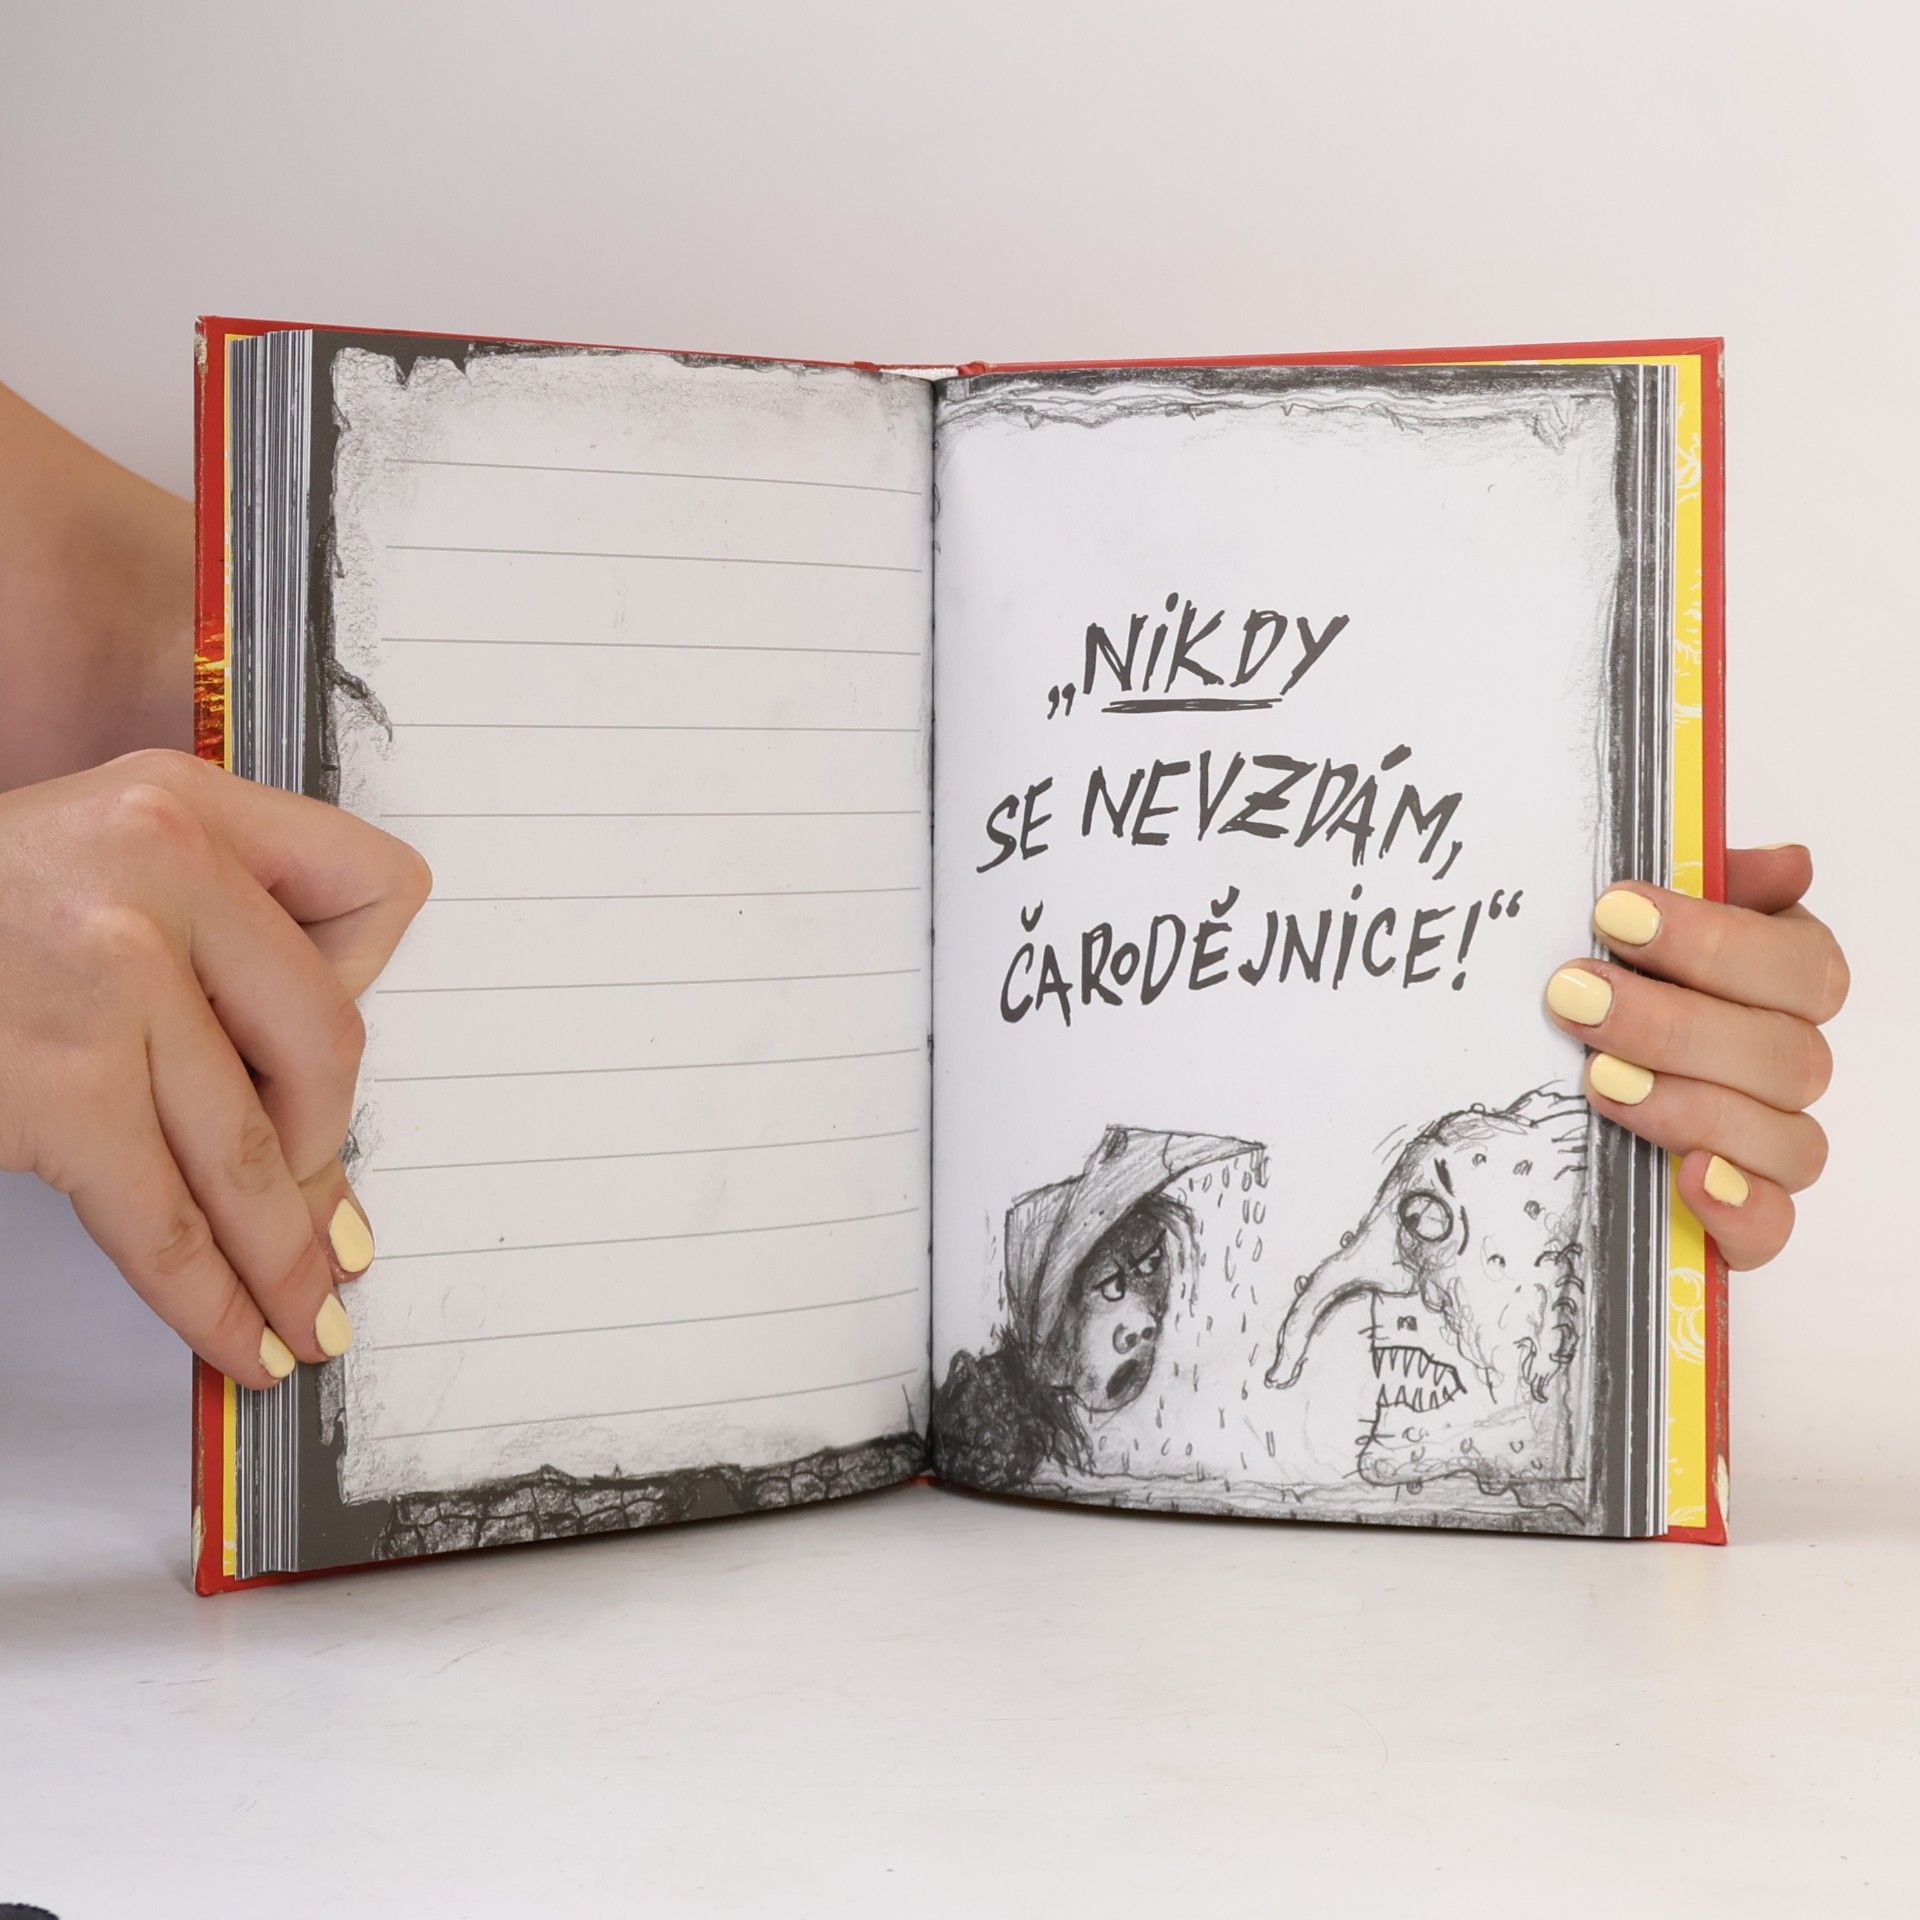 „NIKDY
SE NEVZDÁM,
ČARODĚJNICE!“